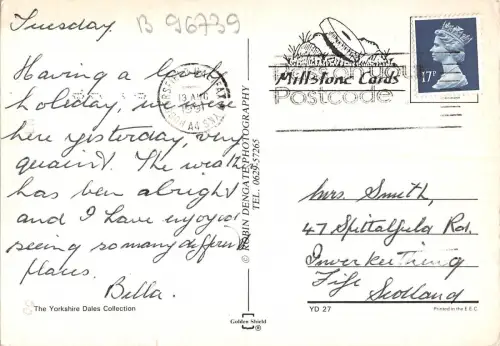 Tuesday.
B 96739
Having a lovely
holiday, we were
here yesterday, very
quaint. The weather
has been alright
and I have enjoyed
seeing so many different
places.
Bella.
The Yorkshire Dales Collection
© ROBIN DENGATE PHOTOGRAPHY
TEL: 0629-57265
Golden Shield
®
Millstone Cards
Postcode
17P
Mrs. Smith,
47 Spittalfield Rd.
Inverkeithing
Fife
Scotland
YD 27
Printed in the E.E.C.